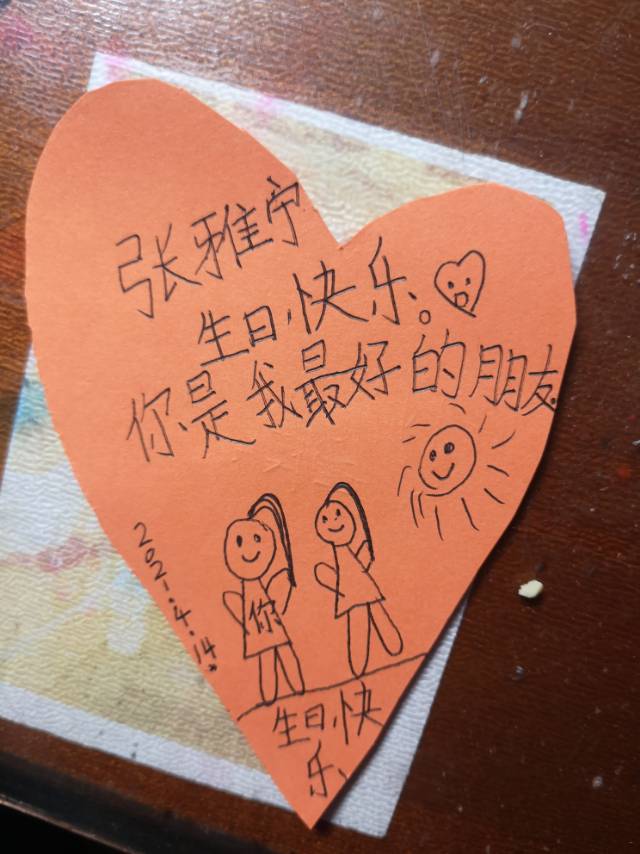 张雅宁
生日快乐。
你是我最好的朋友
2021.4.14.
你
生日快
乐